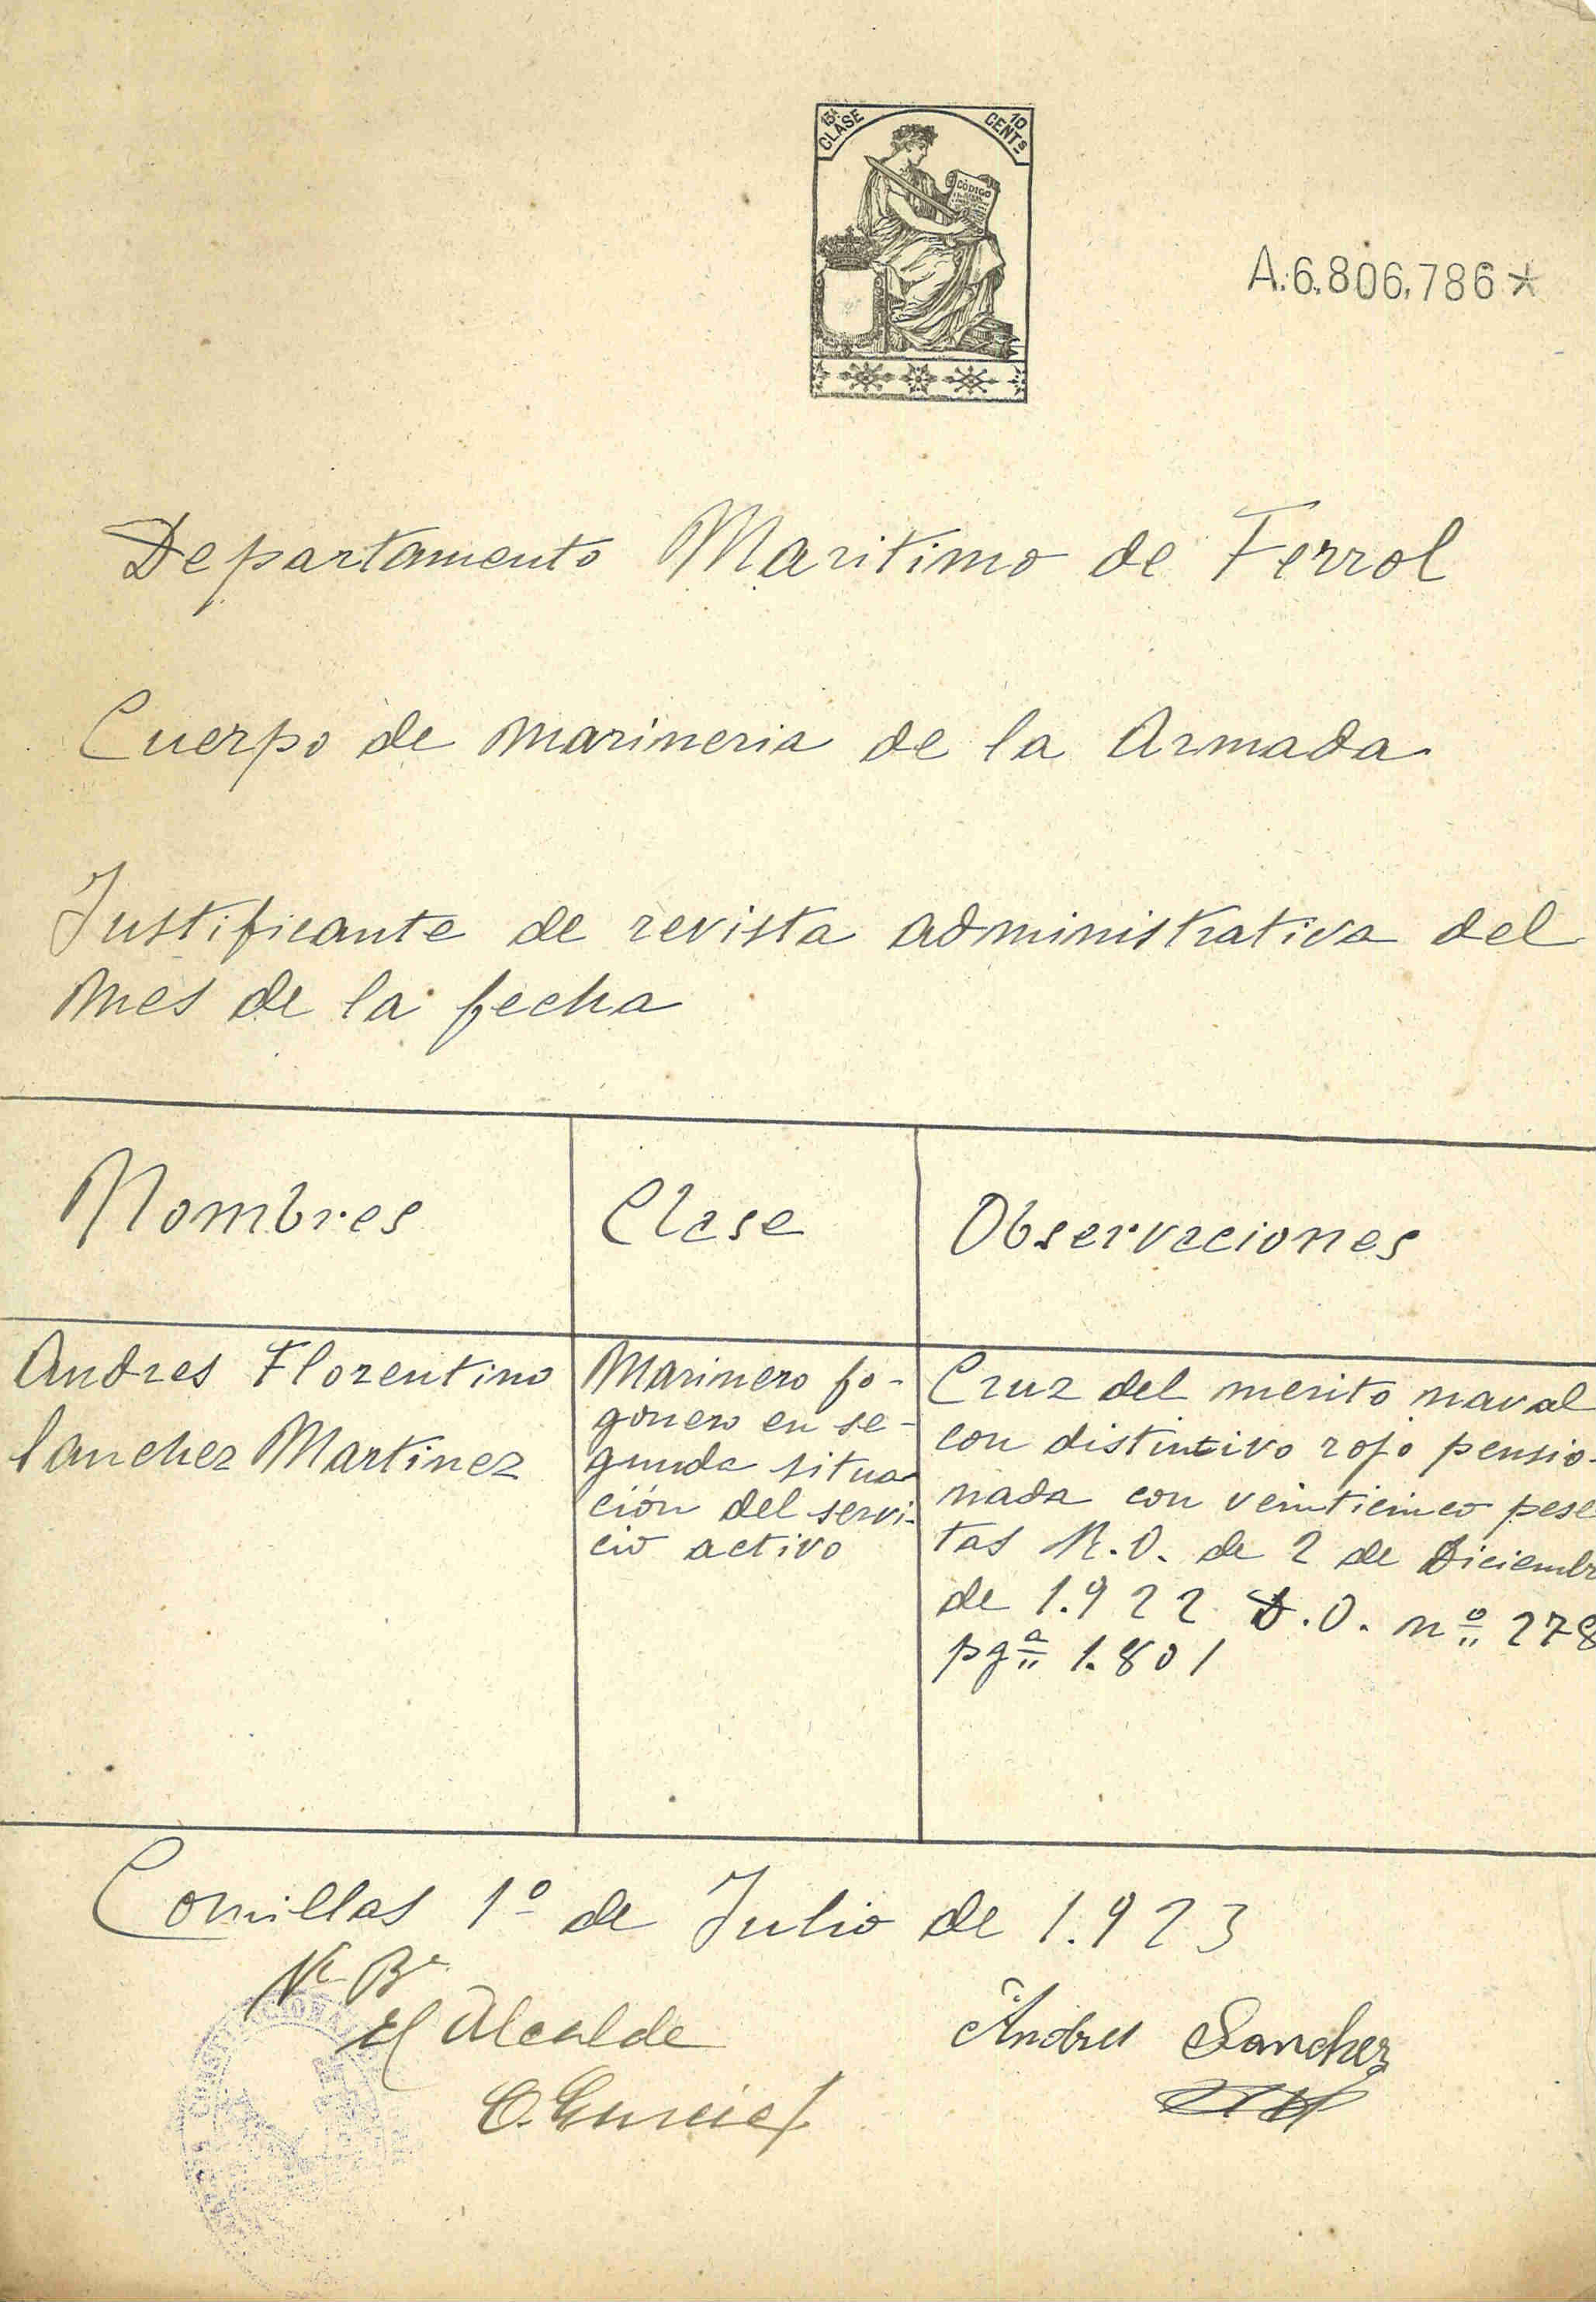 15ª CLASE
10 CENTS
CÓDIGO
A.6.806.786*
Departamento Maritimo de Ferrol
Cuerpo de marineria de la Armada
Justificante de revista administrativa del
mes de la fecha
Nombres
Clase
Observaciones
Andres Florentino
Sanchez Martinez
Marinero fo-
gonero en se-
gunda situa-
ción del servi-
cio activo
Cruz del merito naval
con distintivo rojo pensio-
nada con veinticinco pese
tas R.O. de 2 de Diciembr
de 1.922 D.O. nº 278
pgª 1.801
Comillas 1º de Julio de 1.923
Vº Bº
El Alcalde
Andres Sanchez